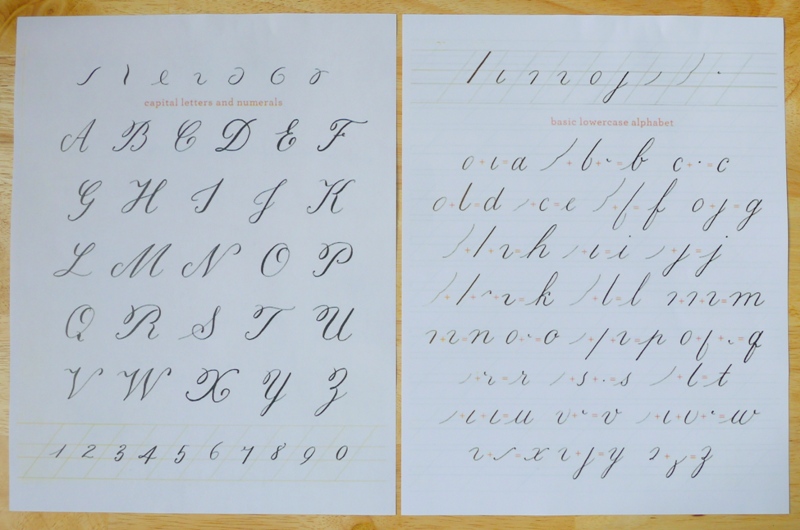 capital letters and numerals
A B C D E F
G H I J K
L M N O P
Q R S T U
V W X Y Z
1 2 3 4 5 6 7 8 9 0
basic lowercase alphabet
a b c
d e f g
h i j
k l m
n o p q
r s t
u v w
x y z